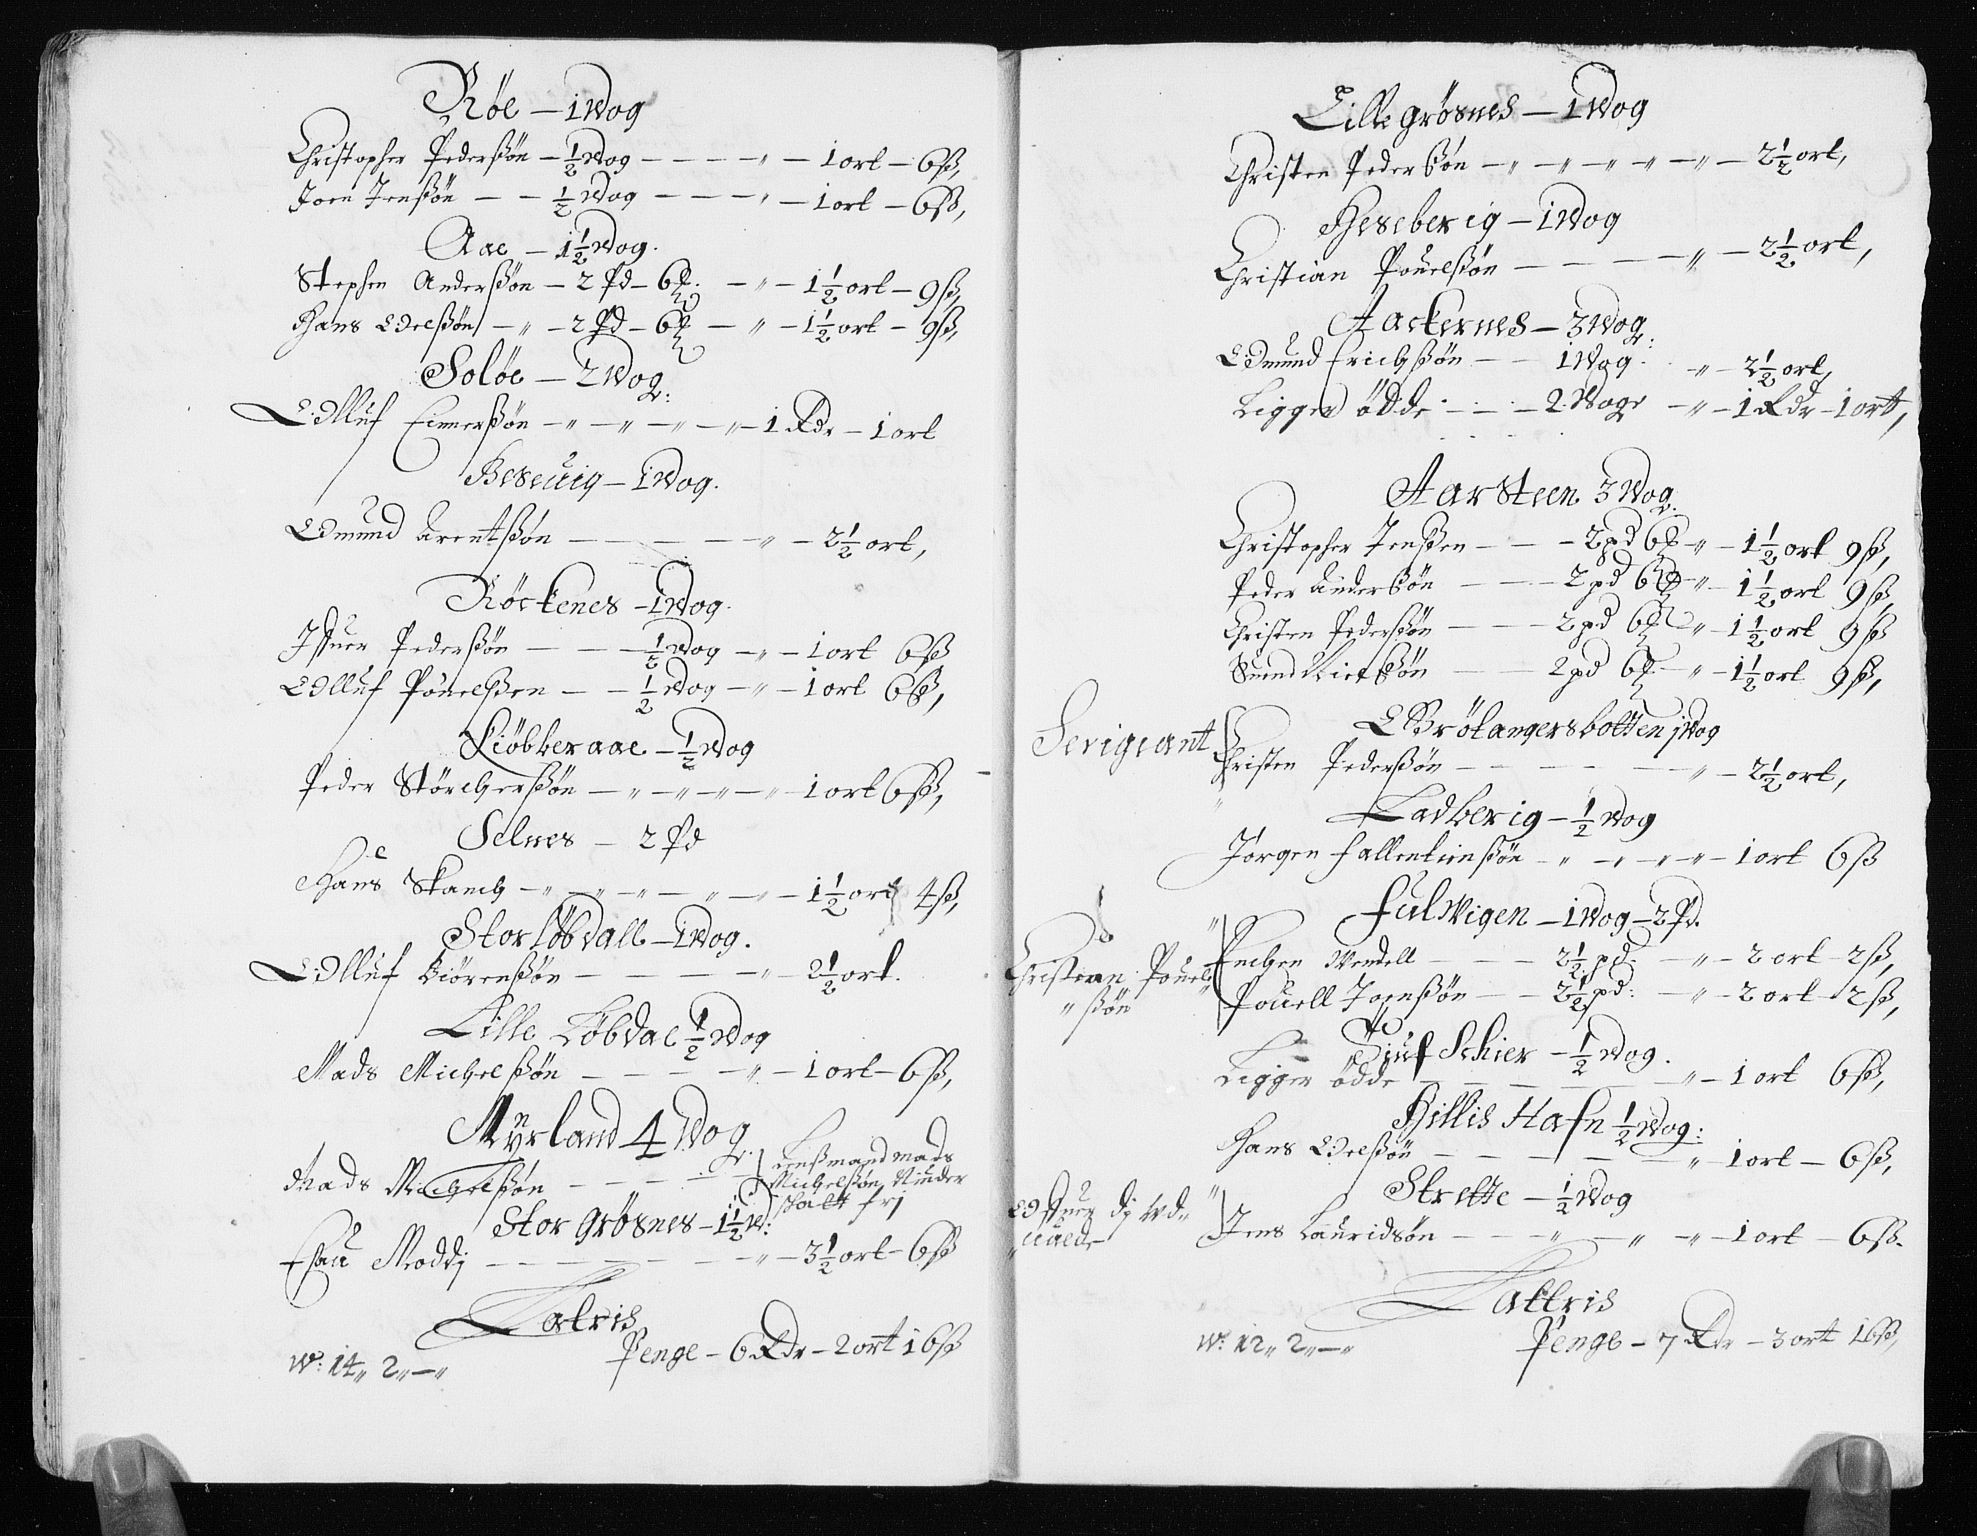 Røe – 1 Wog
Christopher Pederßøn – ½ Wog – – – „ – 1 ort – 6 ß,
Joen Jenßøn – – ½ Wog – – – „ – 1 ort – 6 ß,
Aae – 1½ Wog.
Stephen Anderßøn – 2 Pd – 6 – „ – 1½ ort – 9 ß,
Hans Oelßøn – „ – 2 Pd – 6 – „ – 1½ ort – 9 ß,
Soløe – 2 Wog:
Olluf Einnerßøn – „ – „ – „ – „ – 1 Rdr – 1 ort
Heseuig – 1 Wog.
Omund Arentßøn – – – – „ – 2½ ort,
Røckenes – 1 Wog.
Ifuer Pederßøn – – – ½ Wog – „ – 1 ort 6 ß
Olluf Pouelßen – – ½ Wog – „ – 1 ort 6 ß,
Kiøbberaae – ½ Wog
Peder Størcherßøn – „ – „ – „ – „ – 1 ort 6 ß,
Selnes – 2 Pd
Hans Skanch – „ – „ – „ – „ – „ – 1½ ort 4 ß,
Stor Løbdall – 1 Wog.
Olluf Biørenßøn – – – – „ – 2½ ort.
Lille Løbdal ½ Wog
Mads Michelßøn – – – – „ – 1 ort – 6 ß,
Myrland 4 Wog
Mads Michelßøn – – – – Lenßmand Mads
Michelßøn Niuder
skatt frj
Stor Grøsnes – 1½ W:
Esau Moddj – – – – – – „ – 3½ ort – 6 ß
Latris
W: 14 „ 2 „ – „ Penge – 6 Rdr – 2 ort 16 ß
Lille Grøsnes – 1 Wog
Christen Pederßøn – „ – „ – „ – „ – „ – 2½ ort,
Heseberig – 1 Wog
Christian Pouelßøn – – – – „ – 2½ ort,
Aackernes – 3 Wog:
Omund Erichßøn – – 1 Wog. „ – 2½ ort,
Ligger ödde – – – 2 Woge – „ – 1 Rdr – 1 ortt,
Aarsteen 3 Wog.
Christopher Jenßen – – – 2 pd 6 – „ – 1½ ort 9 ß,
Peder Anderßøn – – – 2 pd 6 – „ – 1½ ort 9 ß,
Christen Pederßøn – – – 2 pd 6 „ – 1½ ort 9 ß
– – 2 pd 6 – „ – 1½ ort 9 ß,
Grøtangersbotten 1 Wog
Serigeant
Christen Pederßøn – – – – – „ – 2½ ort,
Ladberig – ½ Wog
Jørgen fallentinßøn – „ – „ – „ – 1 ort 6 ß
fulwigen – 1 Wog – 2 Pd.
Wendell – – – 2½ pd. – „ – 2 ort – 2 ß,
Christian Pouel
„ ßøn
Pouell Joenßøn – – 2½ pd: – „ – 2 ort – 2 ß,
Tiuf Schier – ½ Wog.
Ligger ödde – – – – – „ – 1 ort 6 ß,
Hillis Hafn ½ Wog:
Hans Oelßøn – – – – – „ 1 ort – 6 ß,
Strette – ½ Wog
Jens Lauridsøn – – – „ – „ – „ – 1 ort – 6 ß.
Lattris
W: 12 „ 2 „ – „ Penge – 7 Rdr – 3 ort 16 ß,